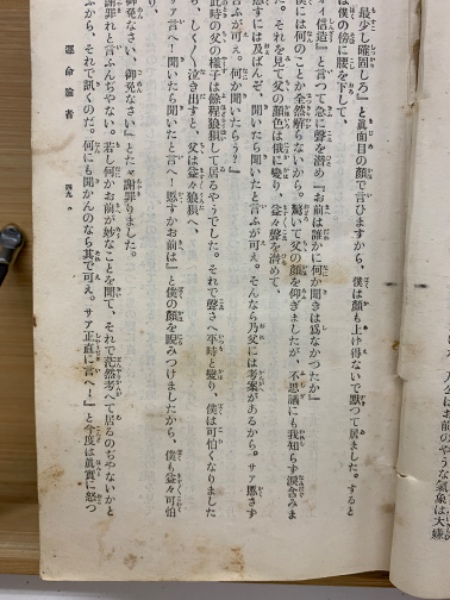 最少し確固しろ』と眞面目の顏で言ひますから、僕は顏も上げ得ないで默つて居ました。すると
は僕の傍に腰を下して、
オイ信造』と言つて急に聲を潜め『お前は誰かに何か聞きは爲なかつたか』
僕には何のことか全然解らないから。驚いて父の顏を仰ぎましたが、不思議にも我知らず淚含みま
た。それを見て父の顏色は俄に變り、益々聲を潜めて、
慝すには及ばんぞ、聞いたら聞いたと言ふが可え。そんなら乃父には考案があるから。サァ慝さず
言ふが可え。何か聞いたらう？』
此時の父の樣子は餘程狼狽して居るやうでした。それで聲さへ平時と變り、僕は可怕くなりました
ら、しく〱泣き出すと、父は益々狼狽へ、
サァ言へ！聞いたら聞いたと言へ！慝すかお前は』と僕の顏を睨みつけましたから、僕も益々可怕
御免なさい、御免なさい』とたゞ謝罪りました。
謝罪れと言ふんぢやない。若し何かお前が妙なことを聞て、それで茫然考へて居るのぢやないかと
ふから、それで訊くのだ。何にも聞かんのなら其で可え。サァ正直に言へ！』と今度は眞實に怒つ
運命論者
四九
人公はお前のやうな氣象は大嫌